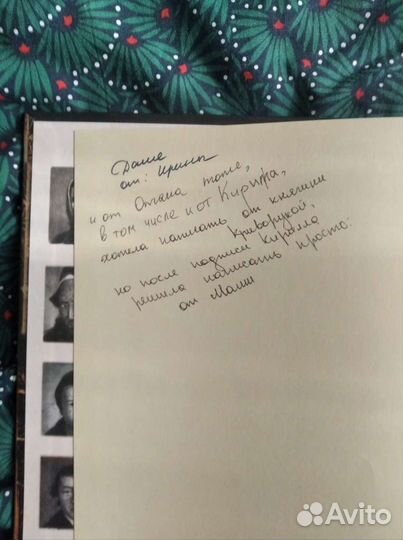 Даше
от: Ирины
и от Отана тоже,
в том числе и от Кирижа,
хотела написать от княгини
криворукой,
но после подписи Кирилла
решила написать просто:
от Маши
Avito